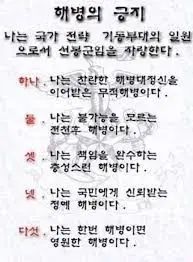 해병의 긍지
나는 국가 전략 기동부대의 일원
으로서 선봉군임을 자랑한다.
하나. 나는 찬란한 해병대정신을
이어받은 무적해병이다.
둘. 나는 불가능을 모르는
전천후 해병이다.
셋. 나는 책임을 완수하는
충성스런 해병이다.
넷. 나는 국민에게 신뢰받는
정예 해병이다.
다섯. 나는 한번 해병이면
영원한 해병이다.